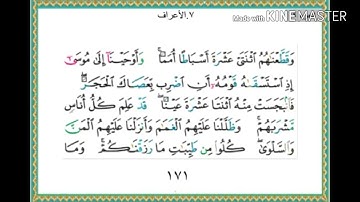 ٧.الأعراف
Made with KINEMASTER
وَقَطَّعۡنَٰهُمُ ٱثۡنَتَيۡ عَشۡرَةَ أَسۡبَاطًا أُمَمٗاۚ وَأَوۡحَيۡنَآ إِلَىٰ مُوسَىٰٓ
إِذِ ٱسۡتَسۡقَىٰهُ قَوۡمُهُۥٓ أَنِ ٱضۡرِب بِّعَصَاكَ ٱلۡحَجَرَۖ
فَٱنۢبَجَسَتۡ مِنۡهُ ٱثۡنَتَا عَشۡرَةَ عَيۡنٗاۖ قَدۡ عَلِمَ كُلُّ أُنَاسٖ
مَّشۡرَبَهُمۡۚ وَظَلَّلۡنَا عَلَيۡهِمُ ٱلۡغَمَٰمَ وَأَنزَلۡنَا عَلَيۡهِمُ ٱلۡمَنَّ
وَٱلسَّلۡوَىٰۖ كُلُواْ مِن طَيِّبَٰتِ مَا رَزَقۡنَٰكُمۡۚ وَمَا
١٧١